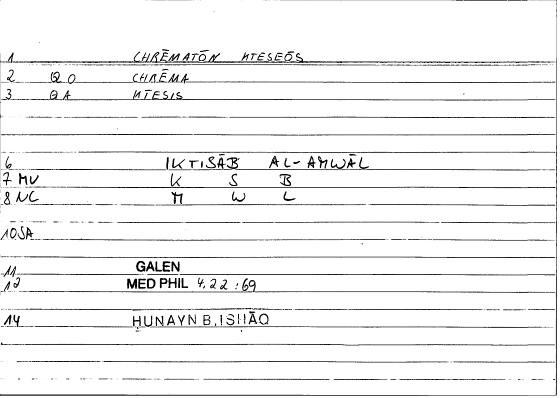 1 CHRĒMATŌN KTESEŌS
2 QO CHRĒMA
3 QA KTESIS
6 IKTISĀB AL-AMWĀL
7 MV K S B
8 NC M W L
10 SA
11 GALEN
12 MED PHIL 4.22:69
14 HUNAYN B. ISHĀQ